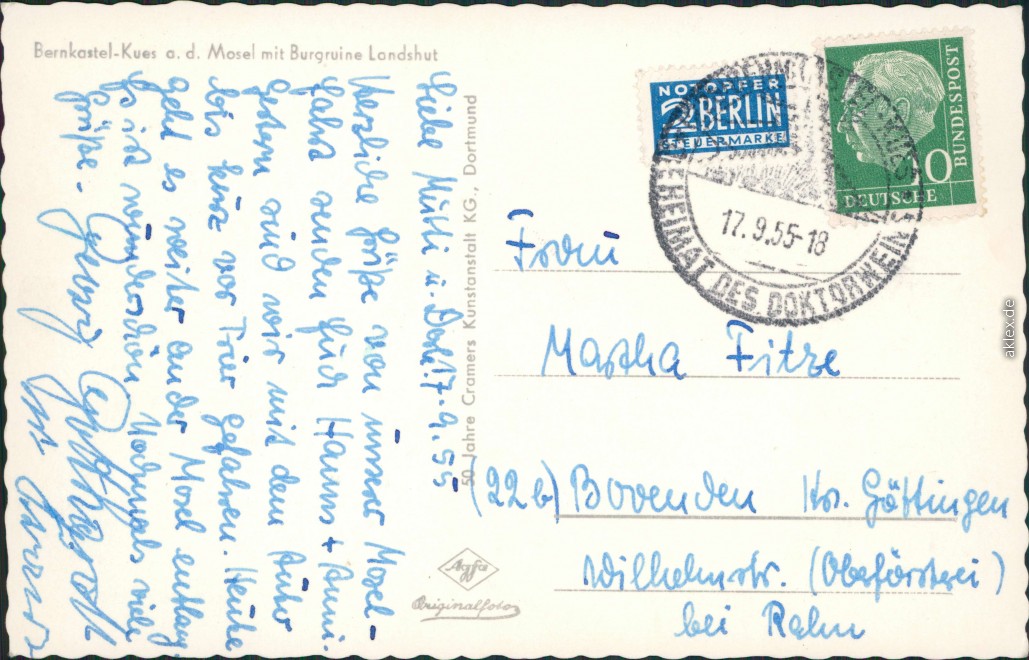 Bernkastel-Kues a. d. Mosel mit Burgruine Landshut
Liebe Mutti u. 17.9.55
Herzliche Grüße von unserer Mosel-
fahrt senden Euch Hanns + Anni.
Gestern sind wir mit dem Auto
bis kurz vor Trier gefahren. Heute
geht es weiter an der Mosel entlang.
Es ist wunderschön. Nochmals viele
Grüße.
50 Jahre Cramers Kunstanstalt KG., Dortmund
Agfa
Originalfoto
NOTOPFER
2 BERLIN
STEUERMARKE
DEUTSCHE
BUNDESPOST
17.9.55-18
HEIMAT DES DOKTORWEINS
Frau
Martha Fitze
(22b) Bovenden Kr. Göttingen
Wilhelmstr. (Oberförsterei)
bei Rahm
aklex.de